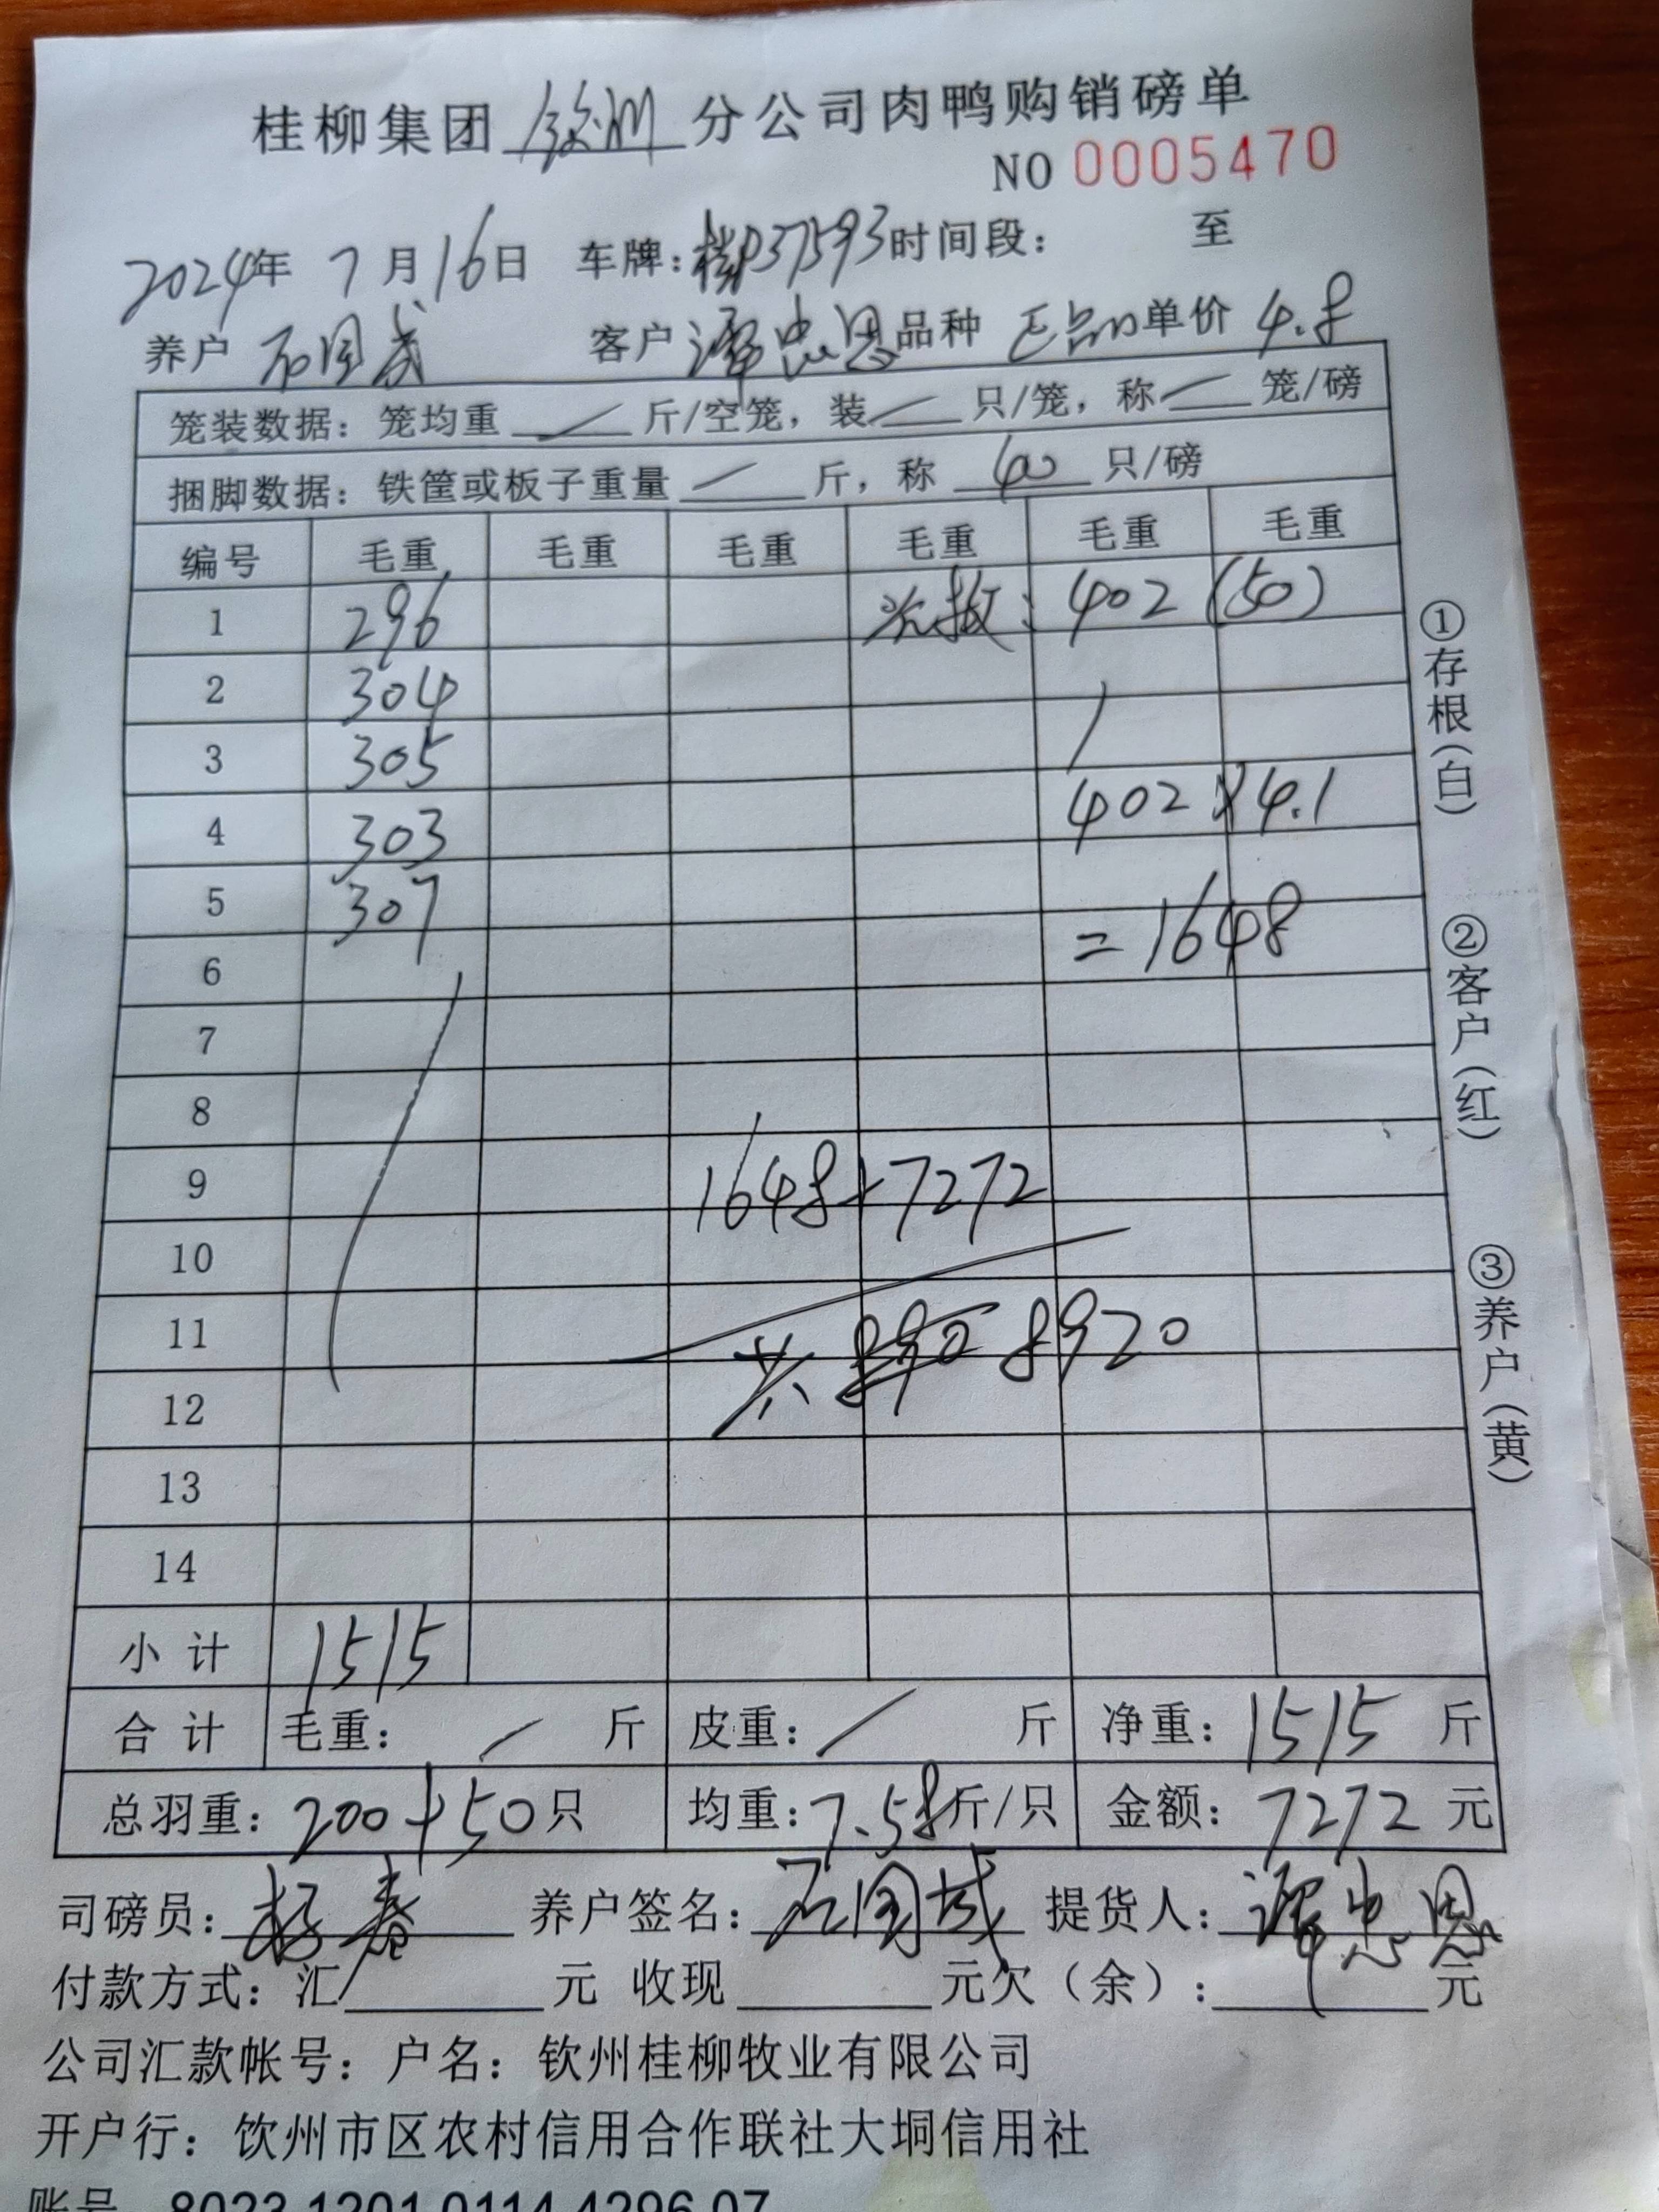 桂柳集团 钦州 分公司肉鸭购销磅单
NO 0005470
2024年 7月16日 车牌:桂P37593 时间段: 至
养户 石国 客户 谭忠恩 品种 正品 单价 4.8
笼装数据: 笼均重 / 斤/空笼, 装 / 只/笼, 称 / 笼/磅
捆脚数据: 铁筐或板子重量 / 斤, 称 40 只/磅
编号 毛重 毛重 毛重 毛重 毛重 毛重
1 296 次: 402 (50)
2 304
3 305
4 303 402×4.1
5 307 =1648
6
7
8
9 1648+7272
10
11 共 8920
12
13
14
小计 1515
合计 毛重: / 斤 皮重: / 斤 净重: 1515 斤
总羽重: 200+50只 均重: 7.58斤/只 金额: 7272 元
司磅员: 杨春 养户签名: 石国 提货人: 谭忠恩
付款方式: 汇 元 收现 元欠(余): 元
公司汇款帐号: 户名: 钦州桂柳牧业有限公司
开户行: 钦州市区农村信用合作联社大垌信用社
账号 8023 1201 0114 4296 07
①存根(白)
②客户(红)
③养户(黄)